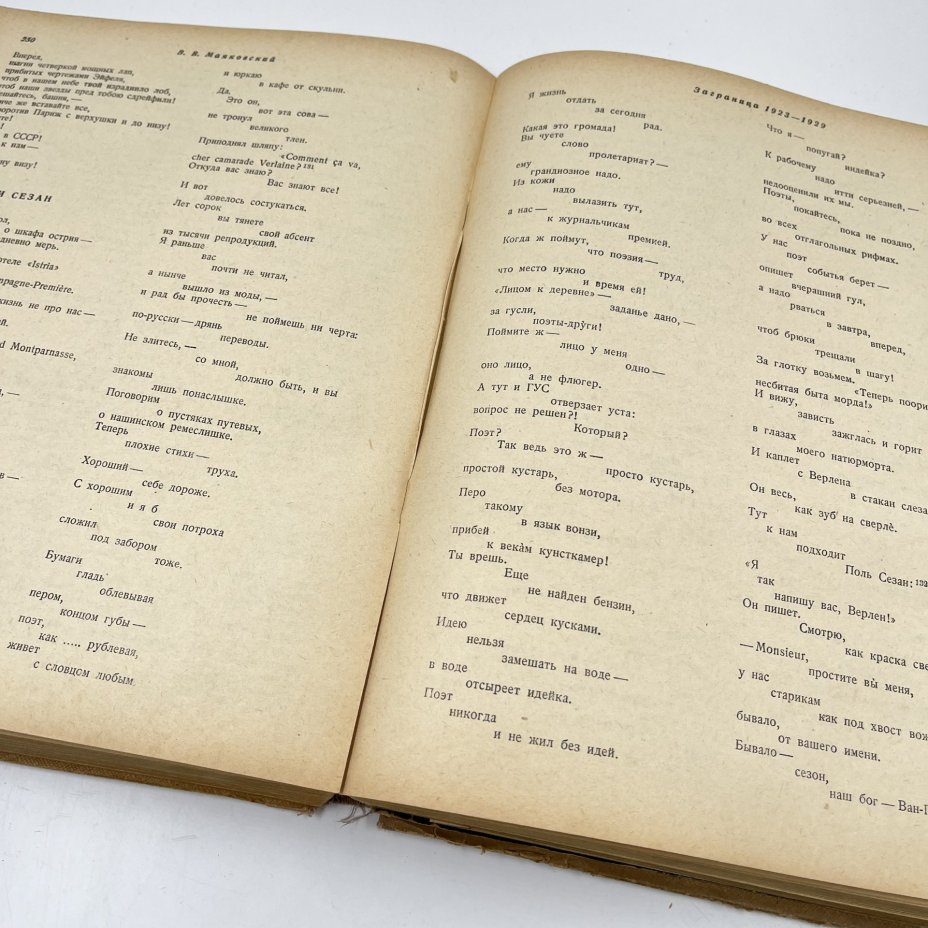 250
В. В. Маяковский
Вперед,
шагни четверкой мощных лап,
прибитых чертежами Эйфеля,
чтоб в нашем небе твой израдиило лоб,
чтоб наши звезды пред тобою сдрейфили!
башни,—
же вставайте все,
Париж с верхушки и до низу!
в СССР!
к нам—
визу!
СЕЗАН
о шкафа острия—
мерь.
«Istria»
Première.
жизнь не про нас—
Montparnasse,
и юркаю
в кафе от скульни.
Да.
Это он,
вот эта сова—
не тронул
великого
тлен.
Приподнял шляпу:
«Comment ça va,
cher camarade Verlaine? 131
Откуда вас знаю?
Вас знают все!
И вот
довелось состукаться.
Лет сорок
вы тянете
свой абсент
из тысячи репродукций.
Я раньше
вас
почти не читал,
а нынче
вышло из моды,—
и рад бы прочесть—
не поймешь ни черта:
по-русски—дрянь
переводы.
Не злитесь,—
со мной,
должно быть, и вы
знакомы
лишь понаслышке.
Поговорим
о пустяках путевых,
о нашинском ремеслишке.
Теперь
плохие стихи—
труха.
Хороший—
себе дороже.
С хорошим
и я б
свои потроха
сложил
под забором
тоже.
Бумаги
гладь
облевывая
пером,
концом губы—
поэт,
как ..... рублевая,
живет
с словцом любым.
Заграница 1923—1929
Я жизнь
отдать
за сегодня
рад.
Какая это громада!
Вы чуете
слово
пролетариат?—
ему
грандиозное надо.
Из кожи
надо
вылазить тут,
а нас—
к журнальчикам
премией.
Когда ж поймут,
что поэзия—
труд,
что место нужно
и время ей!
«Лицом к деревне»—
заданье дано,—
за гусли,
поэты-други!
Поймите ж—
лицо у меня
одно—
оно лицо,
а не флюгер.
А тут и ГУС
отверзает уста:
вопрос не решен?!
Который?
Поэт?
Так ведь это ж—
просто кустарь,
простой кустарь,
без мотора.
Перо
такому
в язык вонзи,
прибей
к векам кунсткамер!
Ты врешь.
Еще
не найден бензин,
что движет
сердец кусками.
Идею
нельзя
замешать на воде—
в воде
отсыреет идейка.
Поэт
никогда
и не жил без идей.
Что я—
попугай?
индейка?
К рабочему
надо
итти серьезней,—
недооценили их мы.
Поэты,
покайтесь,
пока не поздно,
во всех
отглагольных рифмах.
У нас
поэт
событья берет—
опишет
вчерашний гул,
а надо
рваться
в завтра,
вперед,
чтоб брюки
трещали
в шагу!
За глотку возьмем.
«Теперь
несбитая быта морда!»
И вижу,
зависть
зажглась и горит
в глазах
моего натюрморта.
И каплет
с Верлена
в стакан слеза
Он весь,
как зуб на сверле.
Тут
к нам
подходит
Поль Сезан: 132
«Я
так
напишу вас, Верлен!»
Он пишет.
Смотрю,
как краска
—Monsieur,
простите вы меня,
у нас
старикам
как под хвост
бывало,
от вашего имени.
Бывало—
сезон,
наш бог—